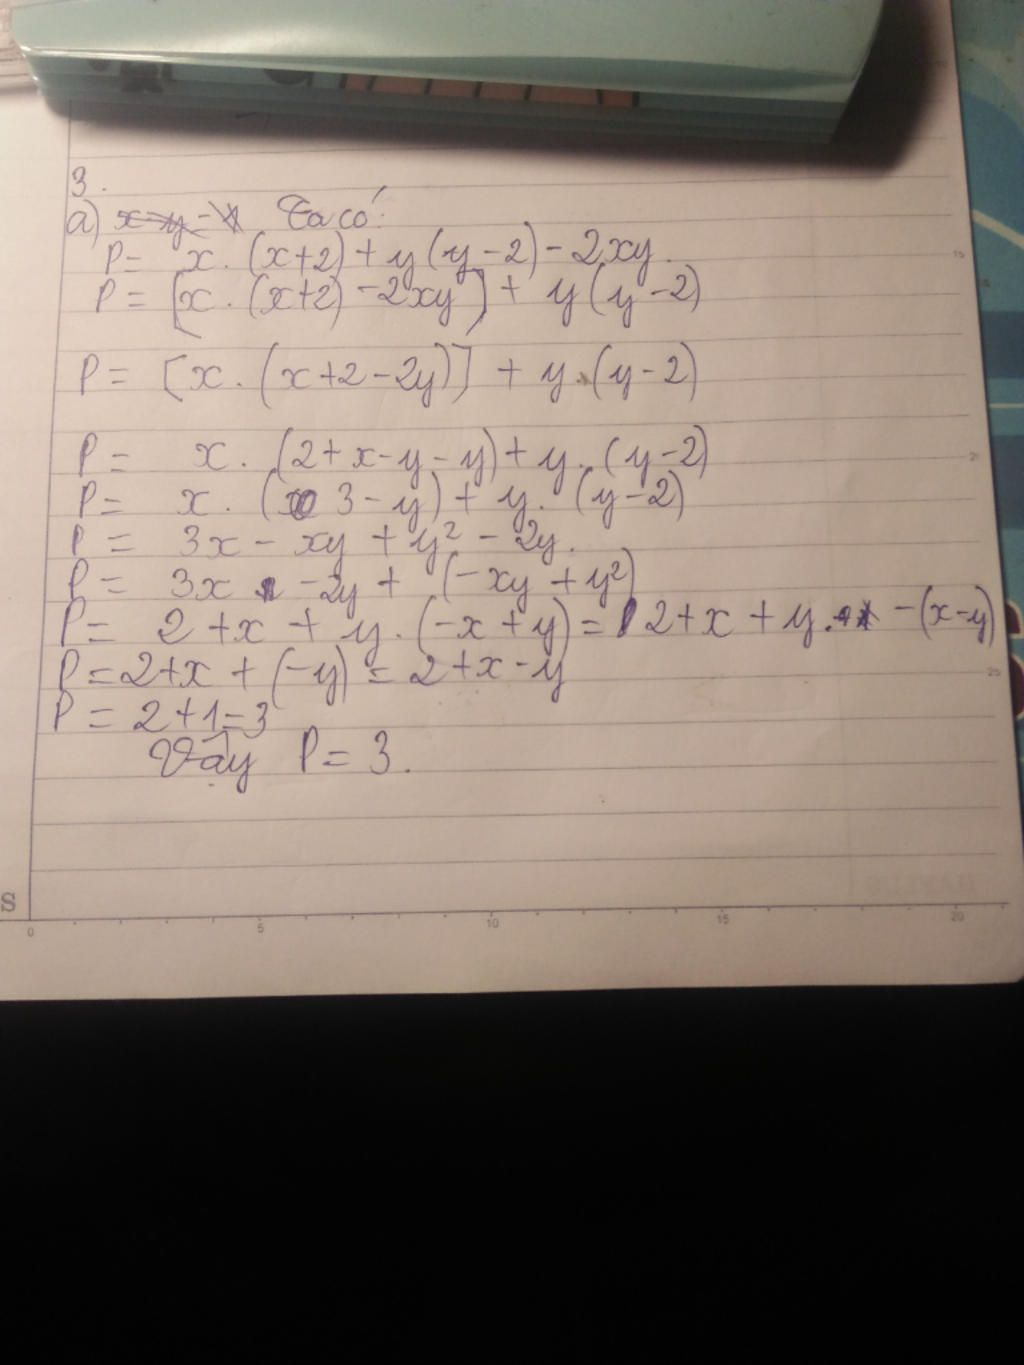 3.
a) x-y=1 Ta có:
P= x.(x+2)+y(y-2)-2xy.
P=[x.(x+2)-2xy]+y(y-2)
P=[x.(x+2-2y)]+y.(y-2)
P= x.(2+x-y-y)+y.(y-2)
P= x.(3-y)+y.(y-2)
P= 3x-xy+y²-2y.
P= 3x-2y+(-xy+y²)
P= 2+x+y.(-x+y)= 2+x+y.-(x-y)
P=2+x+(-y)=2+x-y
P=2+1=3
Vậy P=3.
S
0 5 10 15 20
15
25